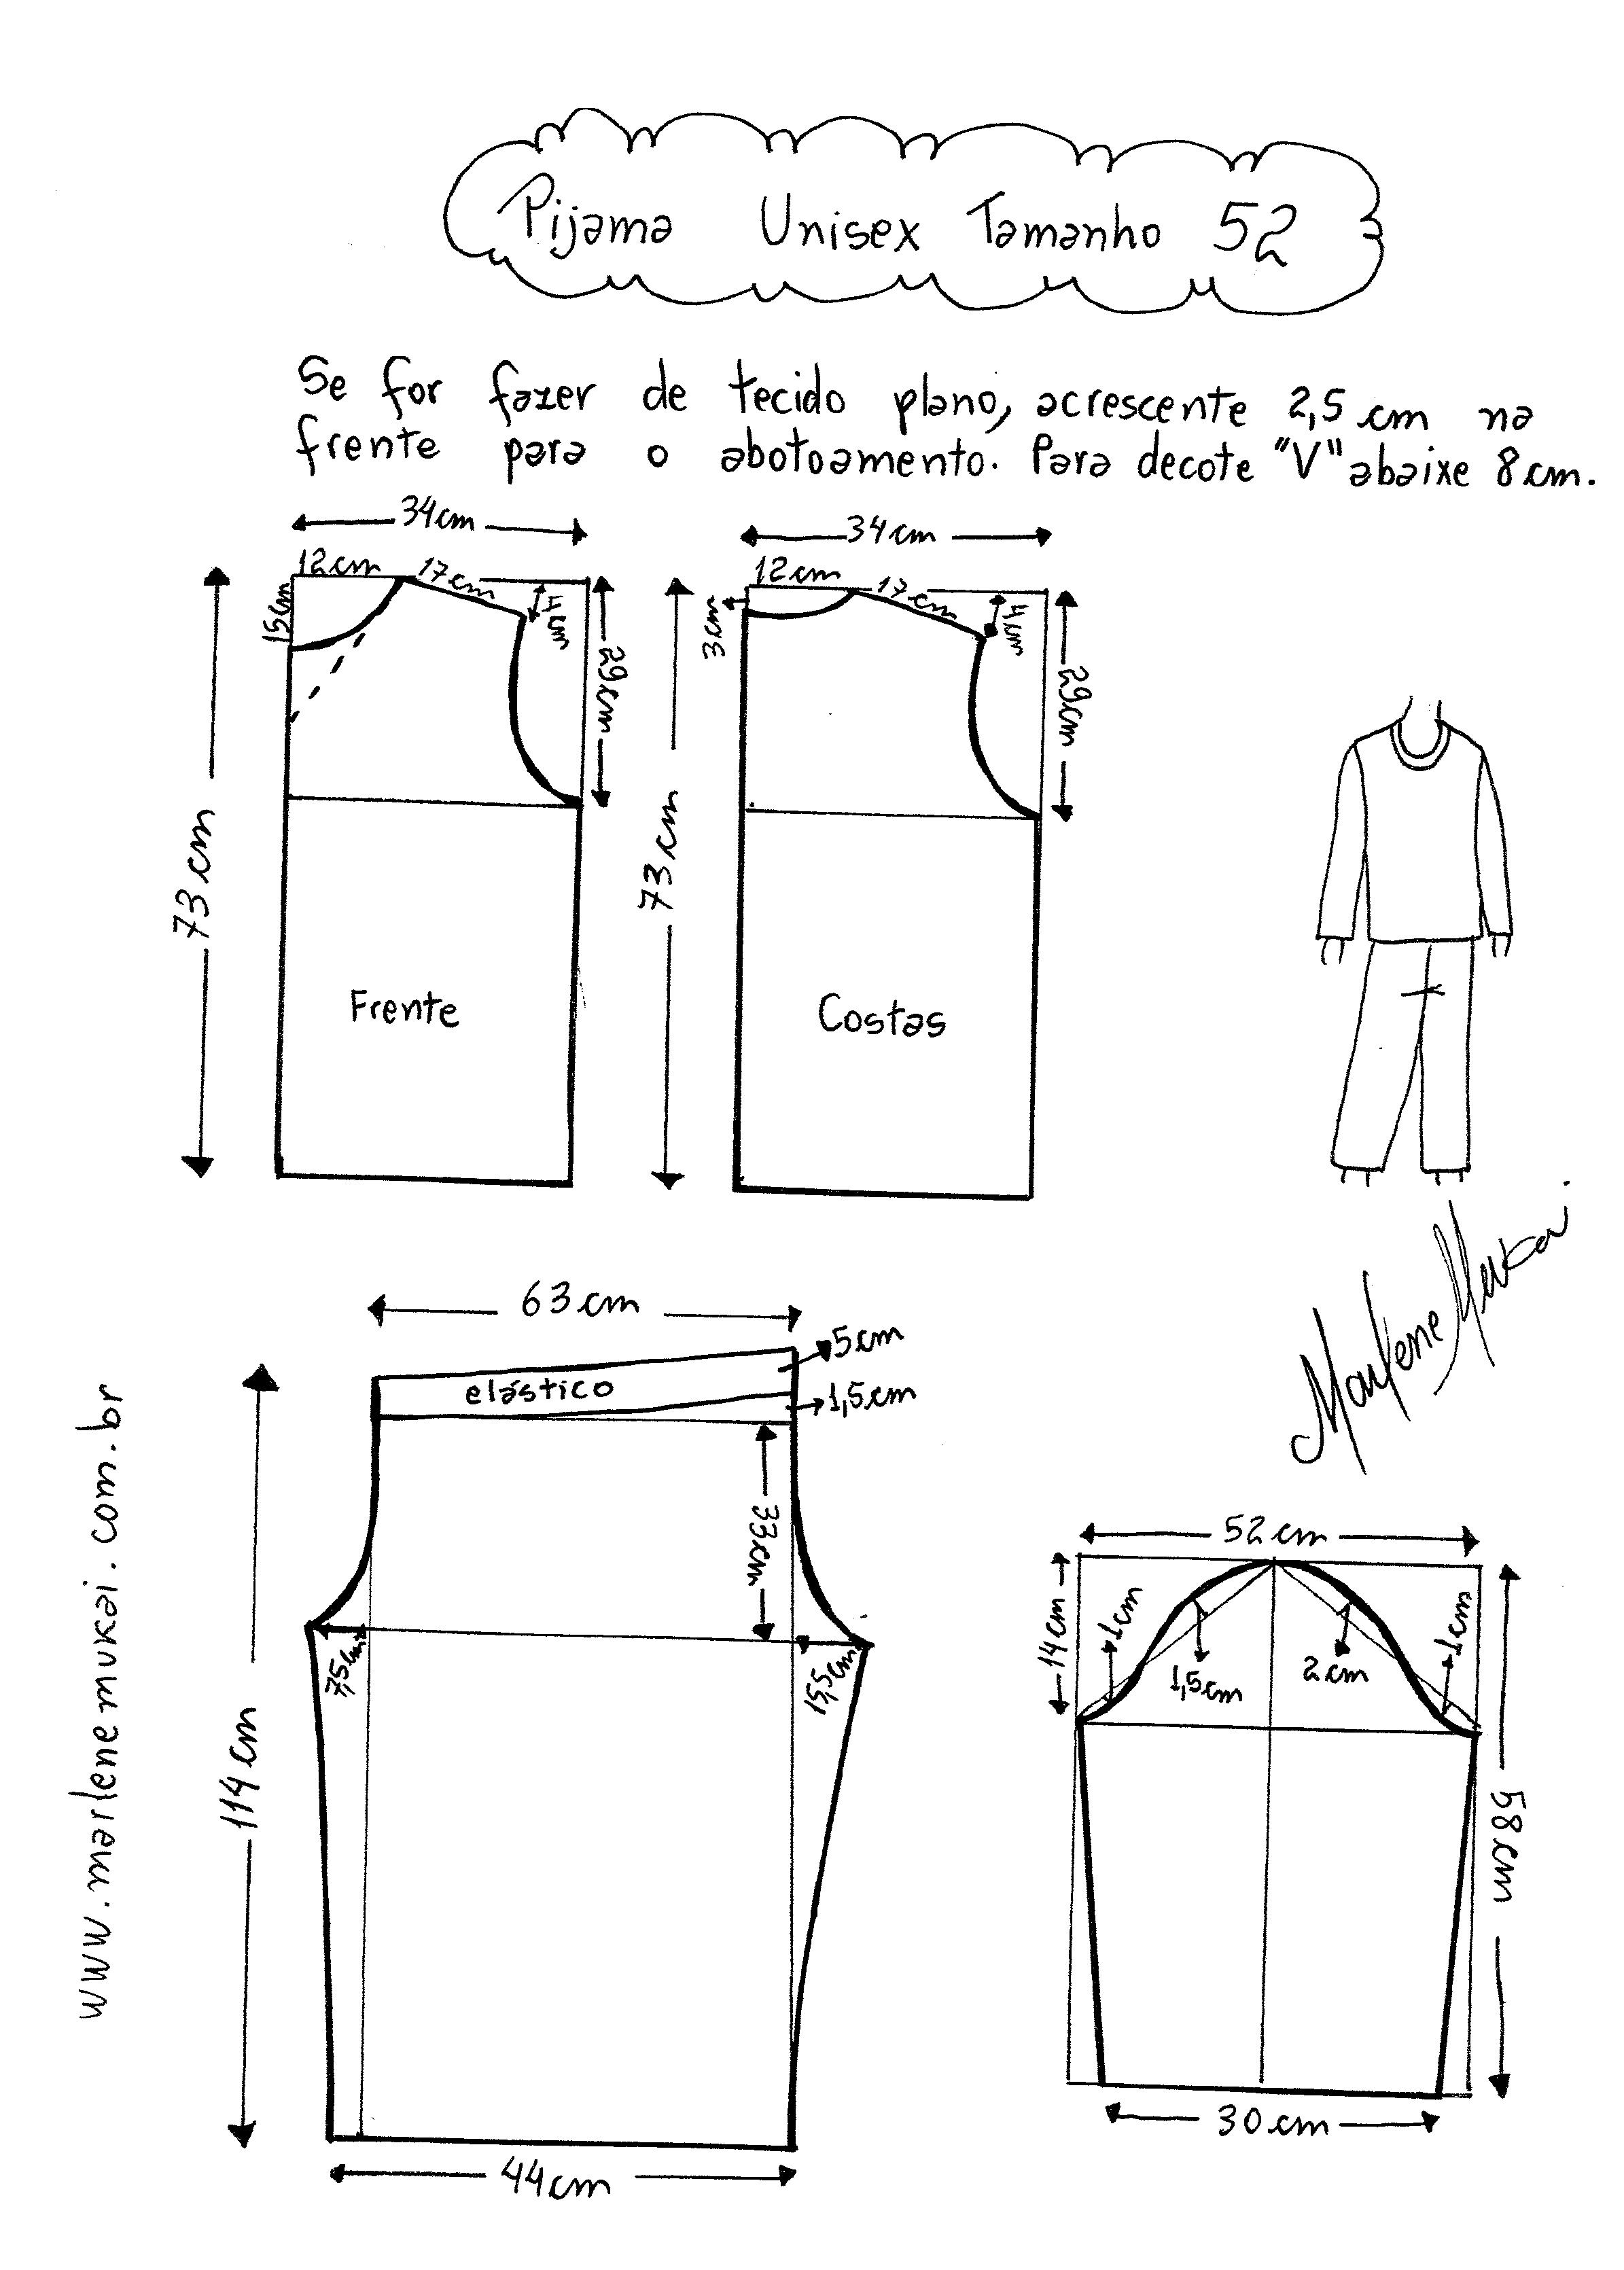 Pijama Unisex Tamanho 52
Se for fazer de tecido plano, acrescente 2,5 cm na
frente para o abotoamento. Para decote "V" abaixe 8 cm.
34cm
12cm
17cm
15cm
4cm
29cm
73cm
Frente
34cm
12cm
17cm
3cm
4cm
29cm
73cm
Costas
Marlene Mukai
63cm
5cm
elástico
1,5cm
33cm
7,5cm
15,5cm
114cm
44cm
www.marlenemukai.com.br
52cm
14cm
1cm
1,5cm
2cm
1cm
58cm
30cm